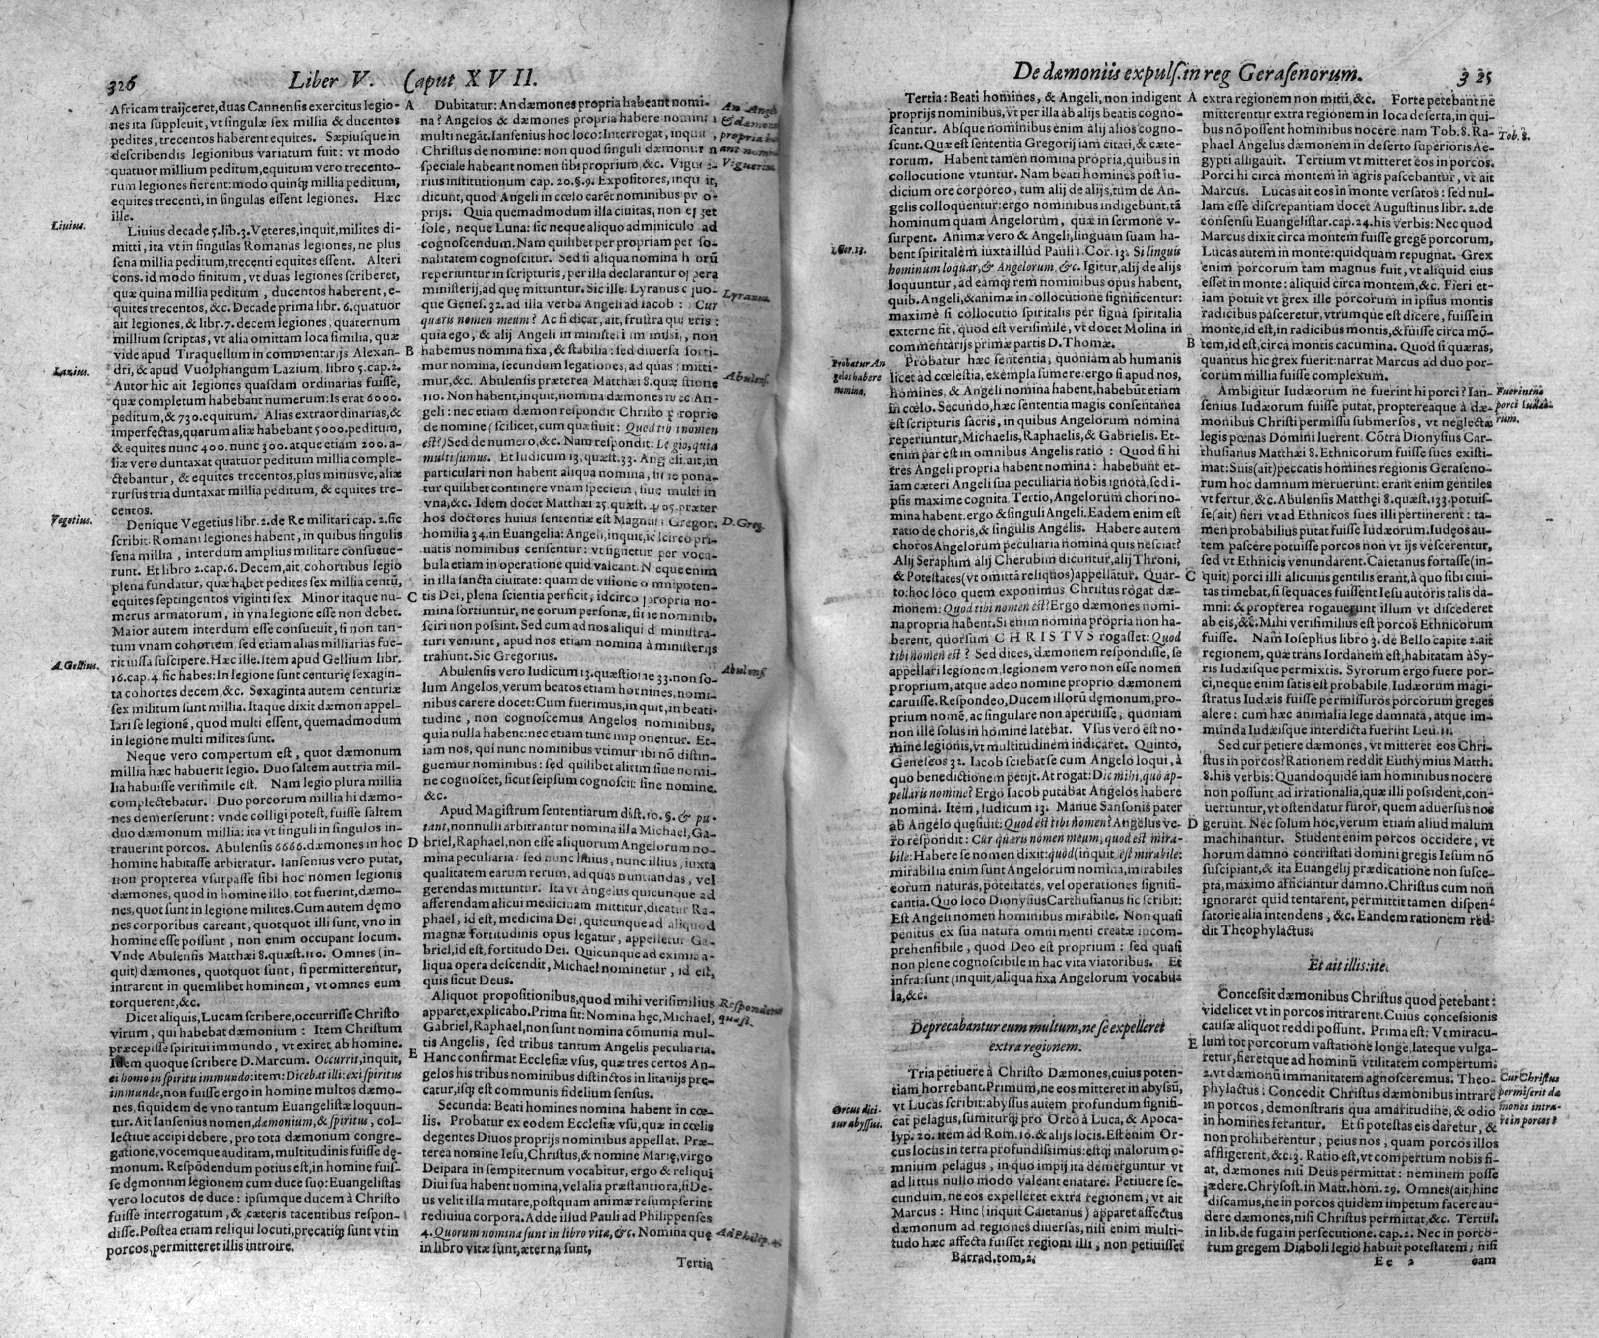 326
Liber V. Caput XVII.
Africam traijceret, duas Cannensis exercitus legio-
nes ita suppleuit, vt singulæ sex millia & ducentos
pedites, trecentos haberent equites. Sæpiusque in
describendis legionibus variatum fuit: vt modo
quatuor millium peditum, equitum vero trecento-
rum legiones fierent: modo quinq; millia peditum,
equites trecenti, in singulas essent legiones. Hæc
ille.
Liuius decade 5. lib. 3. Veteres, inquit, milites di-
mitti, ita vt in singulas Romanas legiones, ne plus
sena millia peditum, trecenti equites essent. Alteri
cons. id modo finitum, vt duas legiones scriberet,
quæ quina millia peditum, ducentos haberent, e-
quites trecentos, &c. Decade prima libr. 6. quatuor
ait legiones, & libr. 7. decem legiones, quaternum
millium scriptas, vt alia omittam loca similia, quæ
vide apud Tiraquellum in commentarijs Alexan-
dri, & apud Vuolphangum Lazium, libro 5. cap. 2.
Autor hic ait legiones quasdam ordinarias fuisse,
quæ completum habebant numerum: Is erat 6000.
peditum, & 730. equitum. Alias extraordinarias, &
imperfectas, quarum aliæ habebant 5000. peditum,
& equites nunc 400. nunc 300. atque etiam 200. a-
liæ vero duntaxat quatuor peditum millia comple-
ctebantur, & equites trecentos, plus minusve, aliæ
rursus tria duntaxat millia peditum, & equites tre-
centos.
Denique Vegetius libr. 2. de Re militari cap. 2. sic
scribit: Romani legiones habent, in quibus singulis
sena millia, interdum amplius militare consueue-
runt. Et libro 2. cap. 6. Decem, ait cohortibus legio
plena fundatur, quæ habet pedites sex millia centũ,
equites septingentos viginti sex Minor itaque nu-
merus armatorum, in vna legione esse non debet.
Maior autem interdum esse consueuit, si non tan-
tum vnam cohortem, sed etiam alias milliarias fue-
rit iussa suscipere. Hæc ille. Item apud Gellium libr.
16. cap. 4 sic habes: In legione sunt centuriæ sexagin-
ta cohortes decem, &c. Sexaginta autem centuriæ
sex militum sunt millia. Itaque dixit dæmon appel-
lari se legionẽ, quod multi essent, quemadmodum
in legione multi milites sunt.
Neque vero compertum est, quot dæmonum
millia hæc habuerit legio. Duo saltem aut tria mil-
lia habuisse verisimile est. Nam legio plura millia
complectebatur. Duo porcorum millia hi dæmo-
nes demerserunt: vnde colligi potest, fuisse saltem
duo dæmonum millia: ita vt singuli in singulos in-
trauerint porcos. Abulensis 6666. dæmones in hoc
homine habitasse arbitratur. Iansenius vero putat,
non propterea vsurpasse sibi hoc nomen legionis
dæmones, quod in homine illo tot fuerint, dæmo-
nes, quot sunt in legione milites. Cum autem dęmo
nes corporibus careant, quotquot illi sunt, vno in
homine esse possunt, non enim occupant locum.
Vnde Abulensis Matthæi 8. quæst. 110. Omnes (in-
quit) dæmones, quotquot sunt, si permitterentur,
intrarent in quemlibet hominem, vt omnes eum
torquerent, &c.
Dicet aliquis, Lucam scribere, occurrisse Christo
virum, qui habebat dæmonium: Item Christum
præcepisse spiritui immundo, vt exiret ab homine.
Idem quoque scribere D. Marcum. Occurrit, inquit,
ei homo in spiritu immundo: item: Dicebat illi: exi spiritus
immunde, non fuisse ergo in homine multos dæmo-
nes, siquidem de vno tantum Euangelistæ loquun-
tur. Ait Iansenius nomen, dæmonium, & spiritus, col-
lectiue accipi debere, pro tota dæmonum congre-
gatione, vocemque auditam, multitudinis fuisse dę-
monum. Respõdendum potius est, in homine fuis-
se dęmonum legionem cum duce suo: Euangelistas
vero locutos de duce: ipsumque ducem à Christo
fuisse interrogatum, & cæteris tacentibus respon-
disse. Postea etiam reliqui locuti, precatiq; sunt vt in
porcos, permitteret illis introire.
Liuius.
Lazius.
Vegetius.
A. Gellius.
A
B
C
D
E
Dubitatur: An dæmones propria habeant nomi-
na? Angelos & dæmones propria habere nomina
multi negãt. Iansenius hoc loco: Interrogat, inquit,
Christus de nomine: non quod singuli dæmonum
speciale habeant nomen sibi proprium, &c. Vigue-
rius institutionum cap. 20. §. 9. Expositores, inquit,
dicunt, quod Angeli in cœlo carẽt nominibus pro-
prijs. Quia quemadmodum illa ciuitas, non eget
sole, neque Luna: sic neque aliquo adminiculo ad
cognoscendum. Nam quilibet per propriam perso-
nalitatem cognoscitur. Sed si aliqua nomina horũ
reperiuntur in scripturis, per illa declarantur opera
ministerij, ad quę mittuntur. Sic ille. Lyranus quo-
que Genes. 32. ad illa verba Angeli ad Iacob: Cur
quæris nomen meum? Ac si dicat, ait, frustra quæris:
quia ego, & alij Angeli in ministerium missi, non
habemus nomina fixa, & stabilia: sed diuersa sorti-
mur nomina, secundum legationes, ad quas mitti-
mur, &c. Abulensis præterea Matthæi 8. quæstione
110. Non habent, inquit, nomina dæmones nec An-
geli: nec etiam dæmon respondit Christo proprio
de nomine (scilicet, cum quæsiuit: Quod tibi nomen
est?) Sed de numero, &c. Nam respondit: Legio, quia
multi sumus. Et Iudicum 13. quæst. 33. Angeli, ait, in
particulari non habent aliqua nomina, siue pona-
tur quilibet continere vnam speciem, siue multi in
vna, &c. Idem docet Matthæi 25. quæst. 405. præter
hos doctores huius sententiæ est Magnus Gregor.
homilia 34. in Euangelia: Angeli, inquit, idcirco pri-
uatis nominibus censentur: vt signetur per voca-
bula etiam in operatione quid valeant. Neque enim
in illa sancta ciuitate: quam de visione omnipoten-
tis Dei, plena scientia perficit; idcirco propria no-
mina sortiuntur, ne eorum personæ, sine nominib.
sciri non possint. Sed cum ad nos aliquid ministra-
turi veniunt, apud nos etiam nomina à ministerijs
trahunt. Sic Gregorius.
Abulensis vero Iudicum 13. quæstione 33. non so-
lum Angelos, verum beatos etiam homines, nomi-
nibus carere docet: Cum fuerimus, inquit, in beati-
tudine, non cognoscemus Angelos nominibus,
quia nulla habent: nec etiam tunc imponentur. Et-
iam nos, qui nunc nominibus vtimur ibi nõ distin-
guemur nominibus: sed quilibet alium sine nomi-
ne cognoscet, sicut seipsum cognoscit sine nomine.
&c.
Apud Magistrum sententiarum dist. 10. §. & pu-
tant, nonnulli arbitrantur nomina illa Michael, Ga-
briel, Raphael, non esse aliquorum Angelorum no-
mina peculiaria: sed nunc huius, nunc illius, iuxta
qualitatem earum rerum, ad quas nuntiandas, vel
gerendas mittuntur. Ita vt Angelus quicunque ad
afferendam alicui medicinam mittitur, dicatur Ra-
phael, id est, medicina Dei, quicunque ad aliquod
magnæ fortitudinis opus legatur, appelletur Ga-
briel, id est, fortitudo Dei. Quicunque ad eximia a-
liqua opera descendit, Michael nominetur, id est,
quis sicut Deus.
Aliquot propositionibus, quod mihi verisimilius
apparet, explicabo. Prima sit: Nomina hęc, Michael,
Gabriel, Raphael, non sunt nomina cõmunia mul-
tis Angelis, sed tribus tantum Angelis peculiaria.
Hanc confirmat Ecclesiæ vsus, quæ tres certos An-
gelos his tribus nominibus distinctos in litanijs pre-
catur, isq; est communis fidelium sensus.
Secunda: Beati homines nomina habent in cœ-
lis. Probatur ex eodem Ecclesiæ vsu, quæ in cœlis
degentes Diuos proprijs nominibus appellat. Præ-
terea nomine Iesu, Christus, & nomine Marię, virgo
Deipara in sempiternum vocabitur, ergo & reliqui
Diui sua habent nomina, vel alia præstantiora, si De-
us velit illa mutare, postquam animæ resumpserint
rediuiua corpora. Adde illud Pauli ad Philippenses
4. Quorum nomina sunt in libro vitæ, &c. Nomina quę
in libro vitæ sunt, æterna sunt,
Tertia
An Ange
& dæmones
propria ha
ant nomi
Viguerius
Lyranus.
Abulens.
D. Greg.
Abulens.
Respondetur
quæst.
Ad Philip. 4.
De dæmoniis expuls. in reg Gerasenorum.
325
Tertia: Beati homines, & Angeli, non indigent
proprijs nominibus, vt per illa ab alijs beatis cogno-
scantur. Absque nominibus enim alij alios cogno-
scunt. Quæ est sententia Gregorij iam citati, & cæte-
rorum. Habent tamen nomina propria, quibus in
collocutione vtuntur. Nam beati homines post iu-
dicium ore corporeo, tum alij de alijs, tum de An-
gelis colloquentur: ergo nominibus indigebunt, tã
hominum quam Angelorum, quæ in sermone v-
surpent. Animæ vero & Angeli, linguam suam ha-
bent spiritalem iuxta illud Pauli 1. Cor. 13. Si linguis
hominum loquar, & Angelorum, &c. Igitur, alij de alijs
loquuntur, ad eamq; rem nominibus opus habent,
quib. Angeli, & animæ in collocutione significentur:
maximè si collocutio spiritalis per signa spiritalia
externe fit, quod est verisimile, vt docet Molina in
commentarijs primæ partis D. Thomæ.
Probatur hæc sententia, quoniam ab humanis
licet ad cœlestia, exempla sumere: ergo si apud nos,
homines, & Angeli nomina habent, habebũt etiam
in cœlo. Secundo, hæc sententia magis consentanea
est scripturis sacris, in quibus Angelorum nomina
reperiuntur, Michaelis, Raphaelis, & Gabrielis. Et-
enim par est in omnibus Angelis ratio: Quod si hi
tres Angeli propria habent nomina: habebunt et-
iam cæteri Angeli sua peculiaria nobis ignota, sed i-
psis maxime cognita. Tertio, Angelorum chori no-
mina habent. ergo & singuli Angeli. Eadem enim est
ratio de choris, & singulis Angelis. Habere autem
choros Angelorum peculiaria nomina quis nesciat?
Alij Seraphim alij Cherubim dicuntur, alij Throni,
& Potestates (vt omittã reliquos) appellãtur. Quar-
to: hoc loco quem exponimus Christus rogat dæ-
monem: Quod tibi nomen est? Ergo dæmones nomi-
na propria habent. Si enim nomina propria non ha-
berent, quorsum CHRISTVS rogasset: Quod
tibi nomen est? Sed dices, dæmonem respondisse, se
appellari legionem, legionem vero non esse nomen
proprium, atque adeo nomine proprio dæmonem
caruisse. Respondeo, Ducem illorũ dęmonum, pro-
prium nomẽ, ac singulare non aperuisse, quoniam
non ille solus in homine latebat. Vsus vero est no-
mine legionis, vt multitudinem indicaret. Quinto,
Geneseos 32. Iacob sciebat se cum Angelo loqui, à
quo benedictionem petijt. At rogat: Dic mihi, quo ap-
pellaris nomine? Ergo Iacob putabat Angelos habere
nomina. Item, Iudicum 13. Manue Sansonis pater
ab Angelo quęsiuit: Quod est tibi nomen? Angelus ve-
ro respondit: Cur quæris nomen meum, quod est mira-
bile: Habere se nomen dixit: quod (inquit est mirabile:
mirabilia enim sunt Angelorum nomina, mirabiles
eorum naturas, potestates, vel operationes signifi-
cantia. Quo loco Dionysius Carthusianus sic scribit:
Est Angeli nomen hominibus mirabile. Non quasi
penitus ex sua natura omni menti creatæ incom-
prehensibile, quod Deo est proprium: sed quasi
non plene cognoscibile in hac vita viatoribus. Et
infra: sunt (inquit) aliqua fixa Angelorum vocabu-
la, &c.
Deprecabantur eum multum, ne se expelleret
extra regionem.
Tria petiuere à Christo Dæmones, cuius poten-
tiam horrebant. Primum, ne eos mitteret in abyssũ,
vt Lucas scribit: abyssus autem profundum signifi-
cat pelagus, sumiturq; pro Orco à Luca, & Apoca-
lyp. 20. item ad Rom. 10. & alijs locis. Est enim Or-
cus locus in terra profundissimus: estq; malorum o-
mnium pelagus, in quo impij ita demerguntur vt
ad littus nullo modo valeant enatare. Petiuere se-
cundum, ne eos expelleret extra regionem, vt ait
Marcus: Hinc (inquit Caietanus) apparet affectus
dæmonum ad regiones diuersas, nisi enim multi-
tudo hæc affecta fuisset regioni illi, non petiuisset
Barrad. tom. 2.
1. Cor. 13.
Probatur An
gelos habere
nomina.
Orcus dici-
tur abyssus.
A
B
C
D
E
extra regionem non mitti, &c. Forte petebant ne
mitterentur extra regionem in loca deserta, in qui-
bus nõ possent hominibus nocere nam Tob. 8. Ra-
phael Angelus dæmonem in deserto superioris Ae-
gypti alligauit. Tertium vt mitteret eos in porcos.
Porci hi circa montem in agris pascebantur, vt ait
Marcus. Lucas ait eos in monte versatos: sed nul-
lam esse discrepantiam docet Augustinus libr. 2. de
consensu Euangelistar. cap. 24. his verbis: Nec quod
Marcus dixit circa montem fuisse gregẽ porcorum,
Lucas autem in monte: quidquam repugnat. Grex
enim porcorum tam magnus fuit, vt aliquid eius
esset in monte: aliquid circa montem, &c. Fieri et-
iam potuit vt grex ille porcorum in ipsius montis
radicibus pasceretur, vtrumque est dicere, fuisse in
monte, id est, in radicibus montis, & fuisse circa mõ-
tem, id est, circa montis cacumina. Quod si quæras,
quantus hic grex fuerit: narrat Marcus ad duo por-
corum millia fuisse complexum.
Ambigitur Iudæorum ne fuerint hi porci? Ian-
senius Iudæorum fuisse putat, proptereaque à dæ-
monibus Christi permissu submersos, vt neglectæ
legis pœnas Domini luerent. Cõtrà Dionysius Car-
thusianus Matthæi 8. Ethnicorum fuisse sues existi-
mat: Suis (ait) peccatis homines regionis Geraseno-
rum hoc damnum meruerunt: erant enim gentiles
vt fertur, &c. Abulensis Matthęi 8. quæst. 133. potuis-
se (ait) fieri vt ad Ethnicos sues illi pertinerent: ta-
men probabilius putat fuisse Iudæorum. Iudęos au-
tem pascere potuisse porcos non vt ijs vescerentur,
sed vt Ethnicis venundarent. Caietanus fortasse (in-
quit) porci illi alicuius gentilis erant, à quo sibi ciui-
tas timebat, si sequaces fuissent Iesu autoris talis da-
mni: & propterea rogauerunt illum vt discederet
ab eis, &c. Mihi verisimilius est porcos Ethnicorum
fuisse. Nam Iosephus libro 3. de Bello capite 2. ait
regionem, quæ trans Iordanem est, habitatam à Sy-
ris Iudæisque permixtis. Syrorum ergo fuere por-
ci, neque enim satis est probabile, Iudæorum magi-
stratus Iudæis fuisse permissuros porcorum greges
alere: cum hæc animalia lege damnata, atque im-
munda Iudæisque interdicta fuerint Leu. 11.
Sed cur petiere dæmones, vt mitteret eos Chri-
stus in porcos? Rationem reddit Euthymius Matth.
8. his verbis: Quandoquidẽ iam hominibus nocere
non possunt, ad irrationalia, quæ illi possident, con-
uertuntur, vt ostendatur furor, quem aduersus nos
gerunt. Nec solum hoc, verum etiam aliud malum
machinantur. Student enim porcos occidere, vt
horum damno contristati domini gregis Iesum nõ
suscipiant, & ita Euangelij prædicatione non susce-
pta, maximo afficiantur damno. Christus cum non
ignoraret quid tentarent, permittit tamen dispen-
satorie alia intendens, &c. Eandem rationem red-
dit Theophylactus.
Et ait illis: ite.
Concessit dæmonibus Christus quod petebant:
videlicet vt in porcos intrarent. Cuius concessionis
causæ aliquot reddi possunt. Prima est: Vt miracu-
lum tot porcorum vastatione longe, lateque vulga-
retur, fieretque ad hominũ vtilitatem compertum.
2. vt dæmonũ immanitatem agnosceremus. Theo-
phylactus: Concedit Christus dæmonibus intrare
in porcos, demonstraris qua amaritudine, & odio
in homines ferantur. Et si potestas eis daretur, &
non prohiberentur, peius nos, quam porcos illos
affligerent, &c. 3. Ratio est, vt compertum nobis fi-
at, dæmones nisi Deus permittat: neminem posse
lædere. Chrysost. in Matt. hom. 29. Omnes (ait) hinc
discamus, ne in porcos quidem impetum facere au-
dere dæmones, nisi Christus permittat, &c. Tertul.
in lib. de fuga in persecutione. cap. 2. Nec in porco-
rum gregem Diaboli legio habuit potestatem, nisi
Ee 2
eam
Tob. 8.
Fuerintne
porci Iudæo-
rum.
Cur Christus
permiserit dæ
mones intra-
re in porcos?